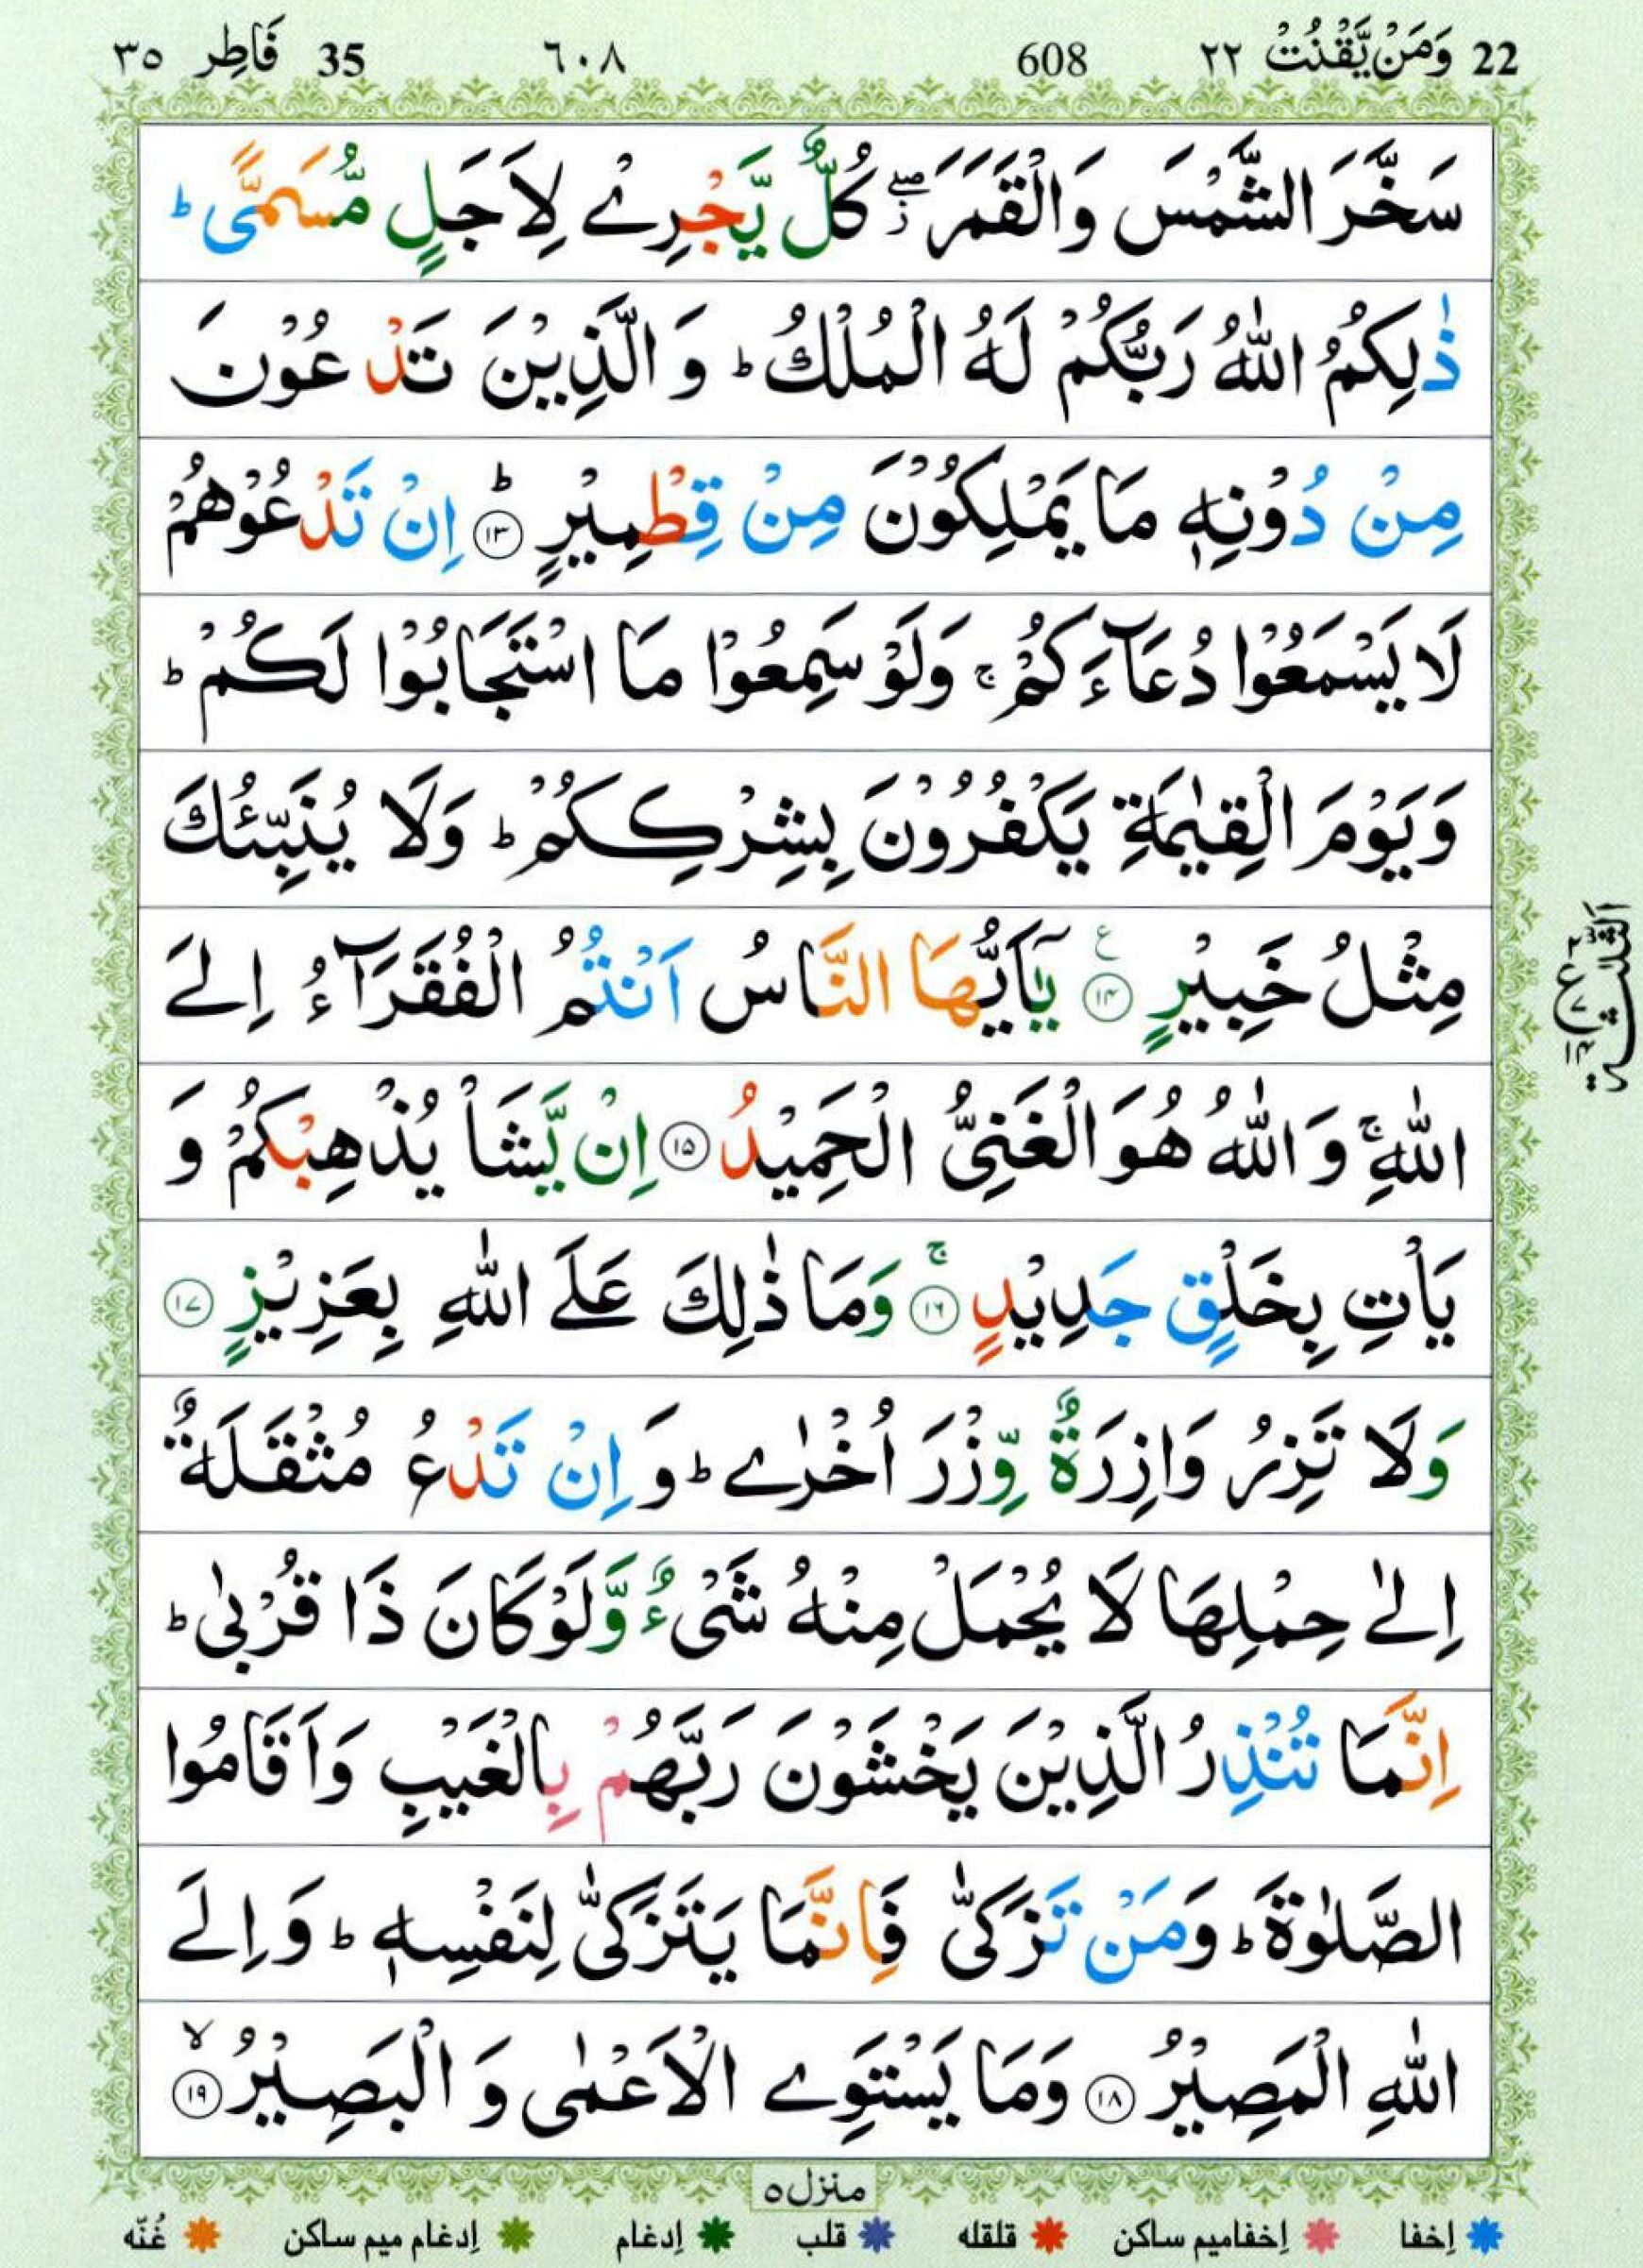 22 وَمَنْ يَّقْنُتْ ٢٢ 608 ٦٠٨ 35 فَاطِر ٣٥
سَخَّرَ الشَّمْسَ وَالْقَمَرَ ۖز كُلٌّ يَّجْرِےْ لِاَجَلٍ مُّسَمًّى ؕ
ذٰلِكُمُ اللّٰهُ رَبُّكُمْ لَهُ الْمُلْكُ ؕ وَ الَّذِيْنَ تَدْعُوْنَ
مِنْ دُوْنِهٖ مَا يَمْلِكُوْنَ مِنْ قِطْمِيْرٍ ؕ ۱۳ اِنْ تَدْعُوْهُمْ
لَا يَسْمَعُوْا دُعَآءَكُمْ ۚ وَلَوْ سَمِعُوْا مَا اسْتَجَابُوْا لَكُمْ ؕ
وَيَوْمَ الْقِيٰمَةِ يَكْفُرُوْنَ بِشِرْكِكُمْ ؕ وَلَا يُنَبِّئُكَ
مِثْلُ خَبِيْرٍ ۱۴ ع يٰٓاَيُّهَا النَّاسُ اَنْتُمُ الْفُقَرَآءُ اِلَے
اللّٰهِ ۚ وَ اللّٰهُ هُوَ الْغَنِيُّ الْحَمِيْدُ ۱۵ اِنْ يَّشَاْ يُذْهِبْكُمْ وَ
يَاْتِ بِخَلْقٍ جَدِيْدٍ ۚ ۱۶ وَمَا ذٰلِكَ عَلَے اللّٰهِ بِعَزِيْزٍ ۱۷
وَلَا تَزِرُ وَازِرَةٌ وِّزْرَ اُخْرٰے ؕ وَ اِنْ تَدْعُ مُثْقَلَةٌ
اِلٰے حِمْلِهَا لَا يُحْمَلْ مِنْهُ شَیْءٌ وَّلَوْ كَانَ ذَا قُرْبٰى ؕ
اِنَّمَا تُنْذِرُ الَّذِيْنَ يَخْشَوْنَ رَبَّهُمْ بِالْغَيْبِ وَاَقَامُوا
الصَّلٰوةَ ؕ وَمَنْ تَزَكّٰى فَاِنَّمَا يَتَزَكّٰى لِنَفْسِهٖ ؕ وَاِلَے
اللّٰهِ الْمَصِيْرُ ۱۸ وَمَا يَسْتَوِے الْاَعْمٰى وَ الْبَصِيْرُ ۙ ۱۹
الثلٰثة
منزل ٥
إخفا إخفا میم ساکن قلقله قلب إدغام إدغام میم ساکن غُنّه